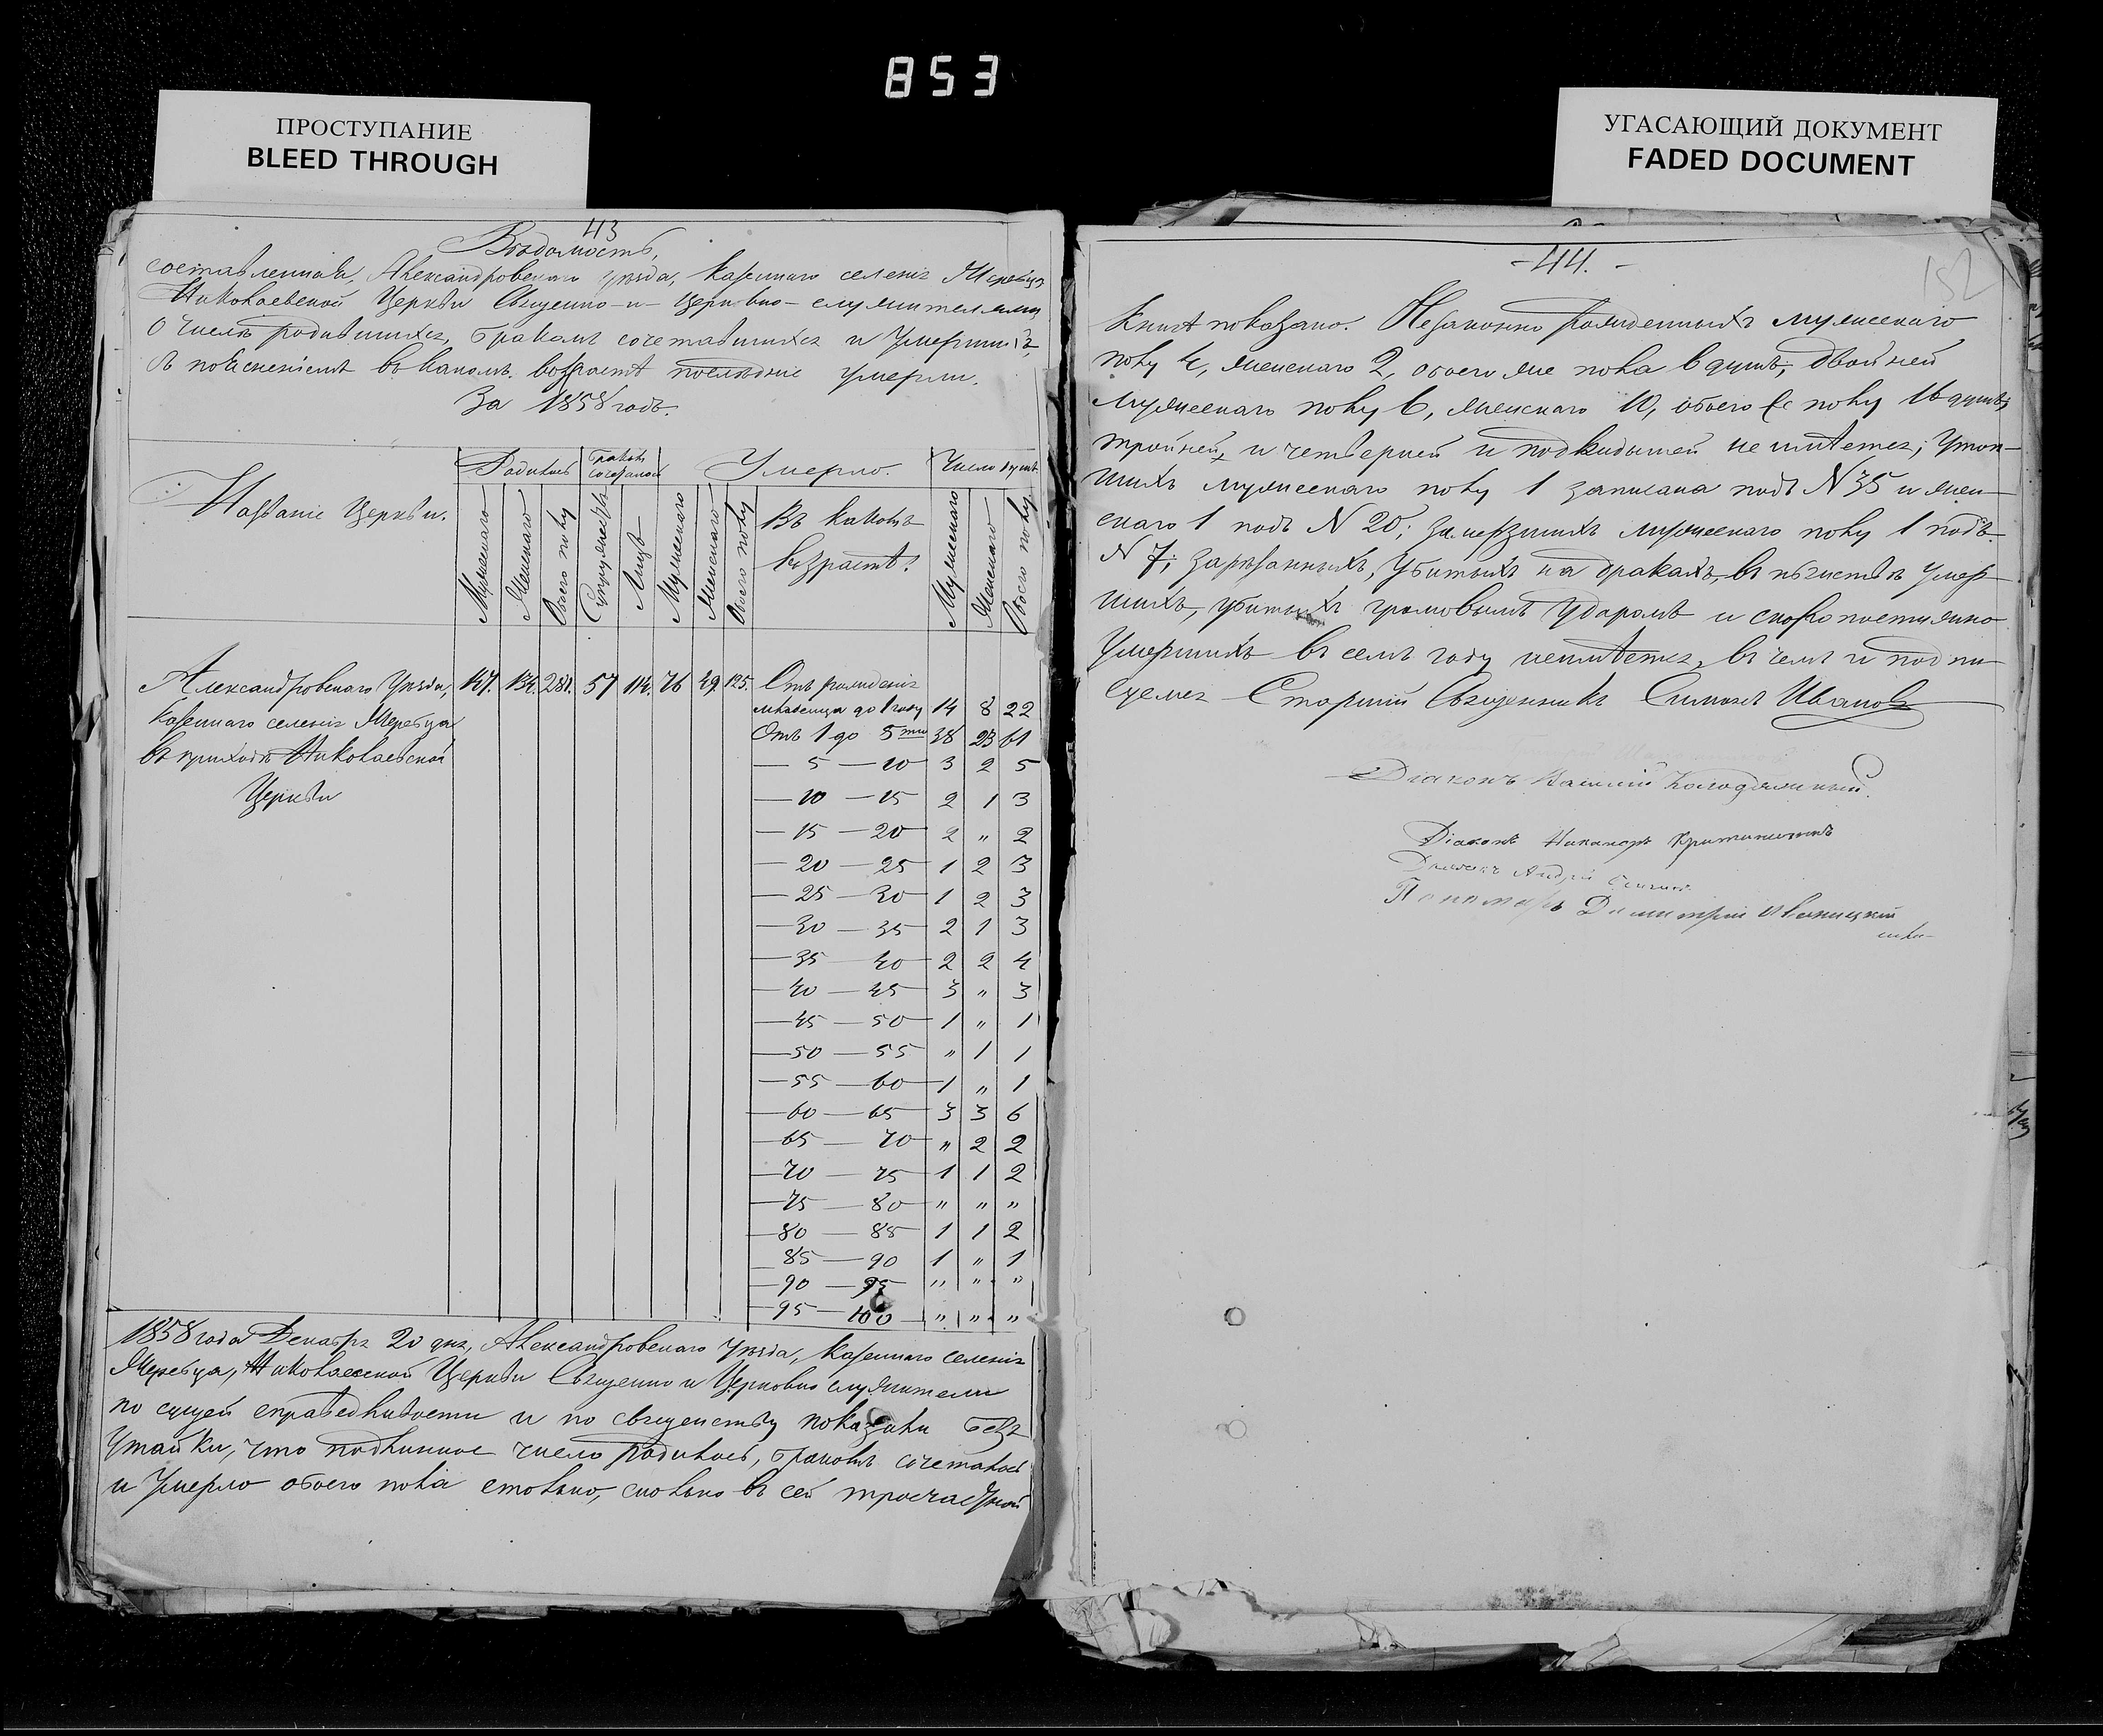 853
ПРОСТУПАНИЕ
BLEED THROUGH
УГАСАЮЩИЙ ДОКУМЕНТ
FADED DOCUMENT
43
Вѣдомость,
составленная, Александровскаго уѣзда, казеннаго селенія Жеребца
Николаевской Церкви Священно-и-церковно-служителями
о числѣ родившихся, бракомъ сочетавшихся и умершихъ,
съ поясненіемъ въ какомъ возрастѣ послѣдніе умерли.
За 1858 годъ.
Названіе Церкви.
Родилось
Браковъ сочеталось
Умерло.
Число душъ
Мужескаго
Женскаго
Обоего полу
Супружествъ
Лицъ
Мужескаго
Женскаго
Обоего полу
Въ какомъ
возрастѣ?
Мужескаго
Женскаго
Обоего полу
Александровскаго Уѣзда, 147. 134. 281. 57 114. 76 49. 125.
казеннаго селенія Жеребца
въ приходѣ Николаевской
Церкви
Отъ рожденія
младенца до 1 году 14 8 22
Отъ 1 до 5 ти 38 23 61
— 5 — 10 3 2 5
— 10 — 15 2 1 3
— 15 — 20 2 „ 2
— 20 — 25 1 2 3
— 25 — 30 1 2 3
— 30 — 35 2 1 3
— 35 — 40 2 2 4
— 40 — 45 3 „ 3
— 45 — 50 1 „ 1
— 50 — 55 „ 1 1
— 55 — 60 1 „ 1
— 60 — 65 3 3 6
— 65 — 70 „ 2 2
— 70 — 75 1 1 2
— 75 — 80 „ „ „
— 80 — 85 1 1 2
— 85 — 90 1 „ 1
— 90 — 95 „ „ „
— 95 — 100 „ „ „
1858 года Декабря 20 дня, Александровскаго уѣзда, казеннаго селенія
Жеребца, Николаевской Церкви Священно и Церковно служители
по сущей справедливости и по священству показали безъ
утайки, что подлинное число родилось, браковъ сочеталось
и умерло обоего пола столько, сколько въ сей троечастной
-44.-
152
книгѣ показано. Незаконно рожденныхъ мужескаго
полу 4, женскаго 2, обоего же пола 6 душъ; двойней
мужескаго полу 6, женскаго 10, обоего же полу 16 душъ;
тройней, и четверней и подкидышей не имѣется; утоп-
шихъ мужескаго полу 1 записана подъ N 35 и жен-
скаго 1 подъ N 20; замерзшихъ мужескаго полу 1 подъ
N 7; зарѣзанныхъ, убитыхъ на дракахъ, въ пьянствѣ умер-
шихъ, убитыхъ громовымъ ударомъ и скоропостижно
умершихъ въ семъ году неимѣется, въ чемъ и подпи-
суемся Старшій Священникъ Симонъ Ивановъ
Діаконъ Василій Колодяжный.
Діаконъ Никаноръ
Дьячокъ Андрей
Пономарь Димитрій